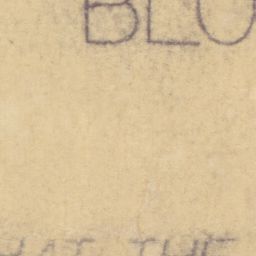 BLO
HAT THE